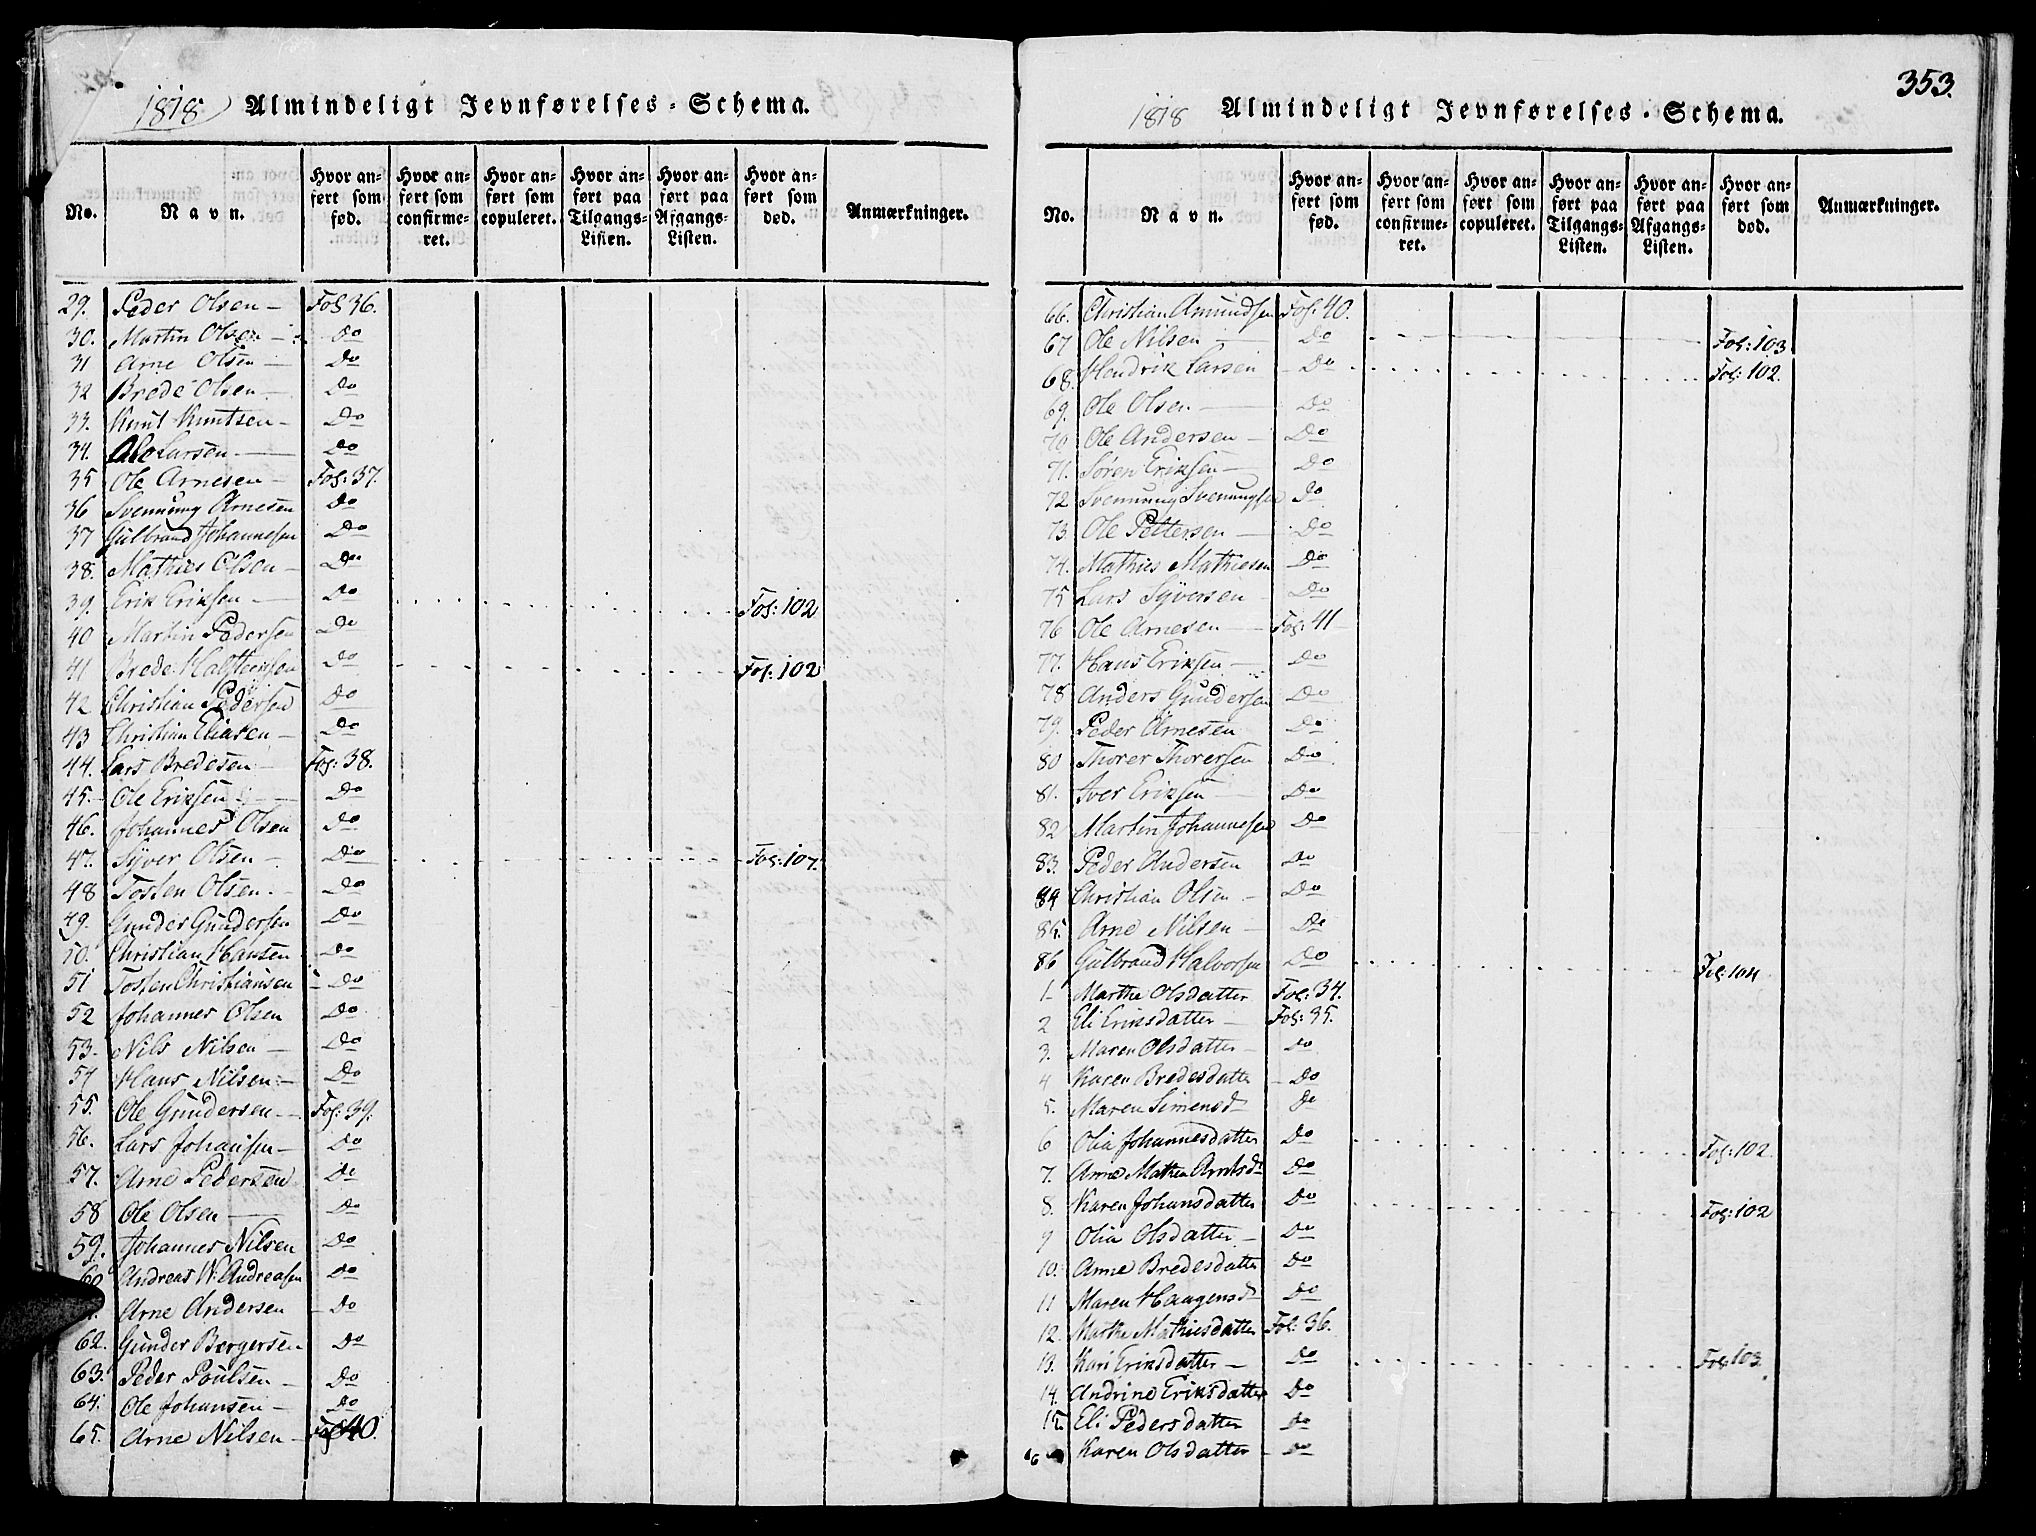 1818 Almindeligt Jevnførelses-Schema.
No. Navn. Hvor anført som fød. Hvor anført som confirmeret. Hvor anført som copuleret. Hvor anført paa Tilgangs-Listen. Hvor anført paa Afgangs-Listen. Hvor anført som død. Anmærkninger.
29. Peder Olsen — Fol 36.
30. Martin Olsen — Do
31 Arne Olsen — Do
32 Brede Olsen — Do
33. Knut Knutsen — Do
34. Larsen — Do
35 Ole Arnesen — Fol: 37.
36 Svennung Arnesen Do
37 Gulbrand Johannesen Do
38. Mathies Olsen — Do
39. Erik Eriksen — Do Fol: 102
40 Martin Pedersen Do
41 Brede Halsteensen Do Fol: 102
42 Christian Pedersen Do
43 Christian Eliasen — Do
44. Lars Bredesen — Fol: 38.
45. Ole Eriksen — Do
46. Johannes Olsen Do
47. Syver Olsen — Do Fol: 107.
48 Tosten Olsen. Do
49. Gunder Gundersen Do
50. Christian Hansen Do
51 Tosten Christiansen Do
52 Johannes Olsen Do
53. Nils Nilsen — Do
54 Hans Nilsen — Do
55. Ole Gundersen — Fol: 39.
56. Lars Johansen — Do
57. Arne Pedersen Do
58 Ole Olsen — Do
59. Johannes Nilsen Do
60 Andreas W. Andreasen Do
Arne Andersen — Do
62. Gunder Bergersen Do
63. Peder Poulsen — Do
64. Ole Johansen — Do
65. Arne Nilsen — Fol 40.
353.
1818 Almindeligt Jevnførelses-Schema.
No. Navn. Hvor anført som fød. Hvor anført som confirmeret. Hvor anført som copuleret. Hvor anført paa Tilgangs-Listen. Hvor anført paa Afgangs-Listen. Hvor anført som død. Anmærkninger.
66. Christian Amundsen Fol: 40.
67 Ole Nilsen — Do Fol: 103
68. Hendrik Larsen — Do Fol: 102.
69. Ole Olsen — Do
70 Ole Andersen — Do
71. Søren Eriksen — Do
72 Svennung Svennungsen Do
73. Ole Pettersen — Do
74. Mathies Mathiesen Do
75 Lars Syversen — Do
76 Ole Arnesen — Fol: 41
77. Hans Eriksen — Do
78 Anders Gundersen Do
79. Peder Arnesen Do
80 Thorer Thorersen Do
81. Iver Eriksen — Do
82 Martin Johannesen Do
83. Peder Andersen Do
84 Christian Olsen — Do
85. Arne Nilsen — Do
86 Gulbrand Halvorsen Do Fol: 104
1 Marthe Olsdatter Fol: 34.
2 Eli Eriksdatter — Fol: 35.
3. Maren Olsdatter — Do
4 Karen Bredesdatter — Do
5. Maren Simensd — Do
6 Olia Johannesdatter Do Fol: 102
7. Anne Mathea Do
8. Karen Johansdatter Do Fol: 102
9 Olia Olsdatter — Do
10. Anne Bredesdatter Do
11 Maren Haagensd Do
12. Marthe Mathiesdatter Fol: 36.
13. Kari Eriksdatter — Do Fol: 103.
14. Andrine Eriksdatter Do
15. Eli Pedersdatter Do
16 Karen Olsdatter — Do